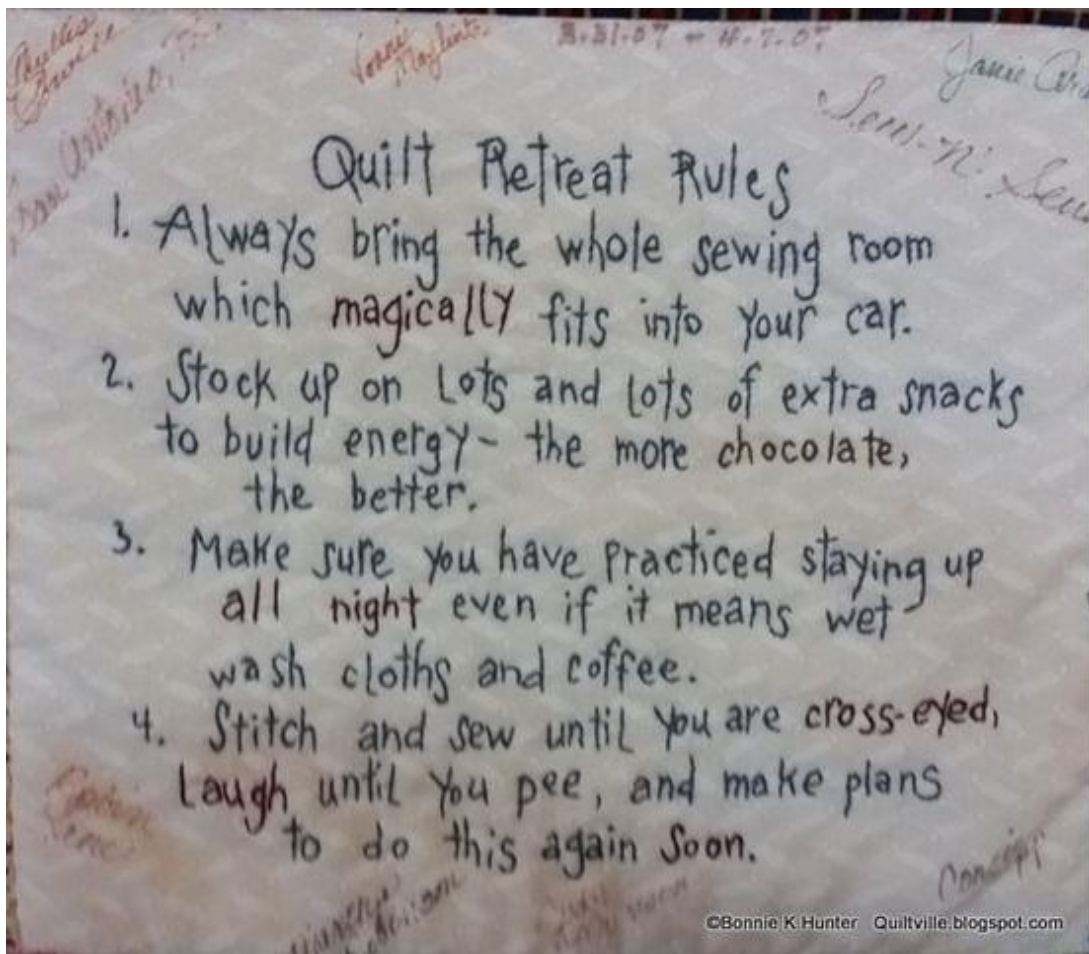 3.31.07 - 4.7.07
San Antonio,
Quilt Retreat Rules
1. Always bring the whole sewing room
which magically fits into your car.
2. Stock up on Lots and lots of extra snacks
to build energy~ the more chocolate,
the better.
3. Make sure you have practiced staying up
all night even if it means wet
wash cloths and coffee.
4. Stitch and sew until you are cross-eyed,
Laugh until you pee, and make plans
to do this again soon.
©Bonnie K Hunter Quiltville.blogspot.com